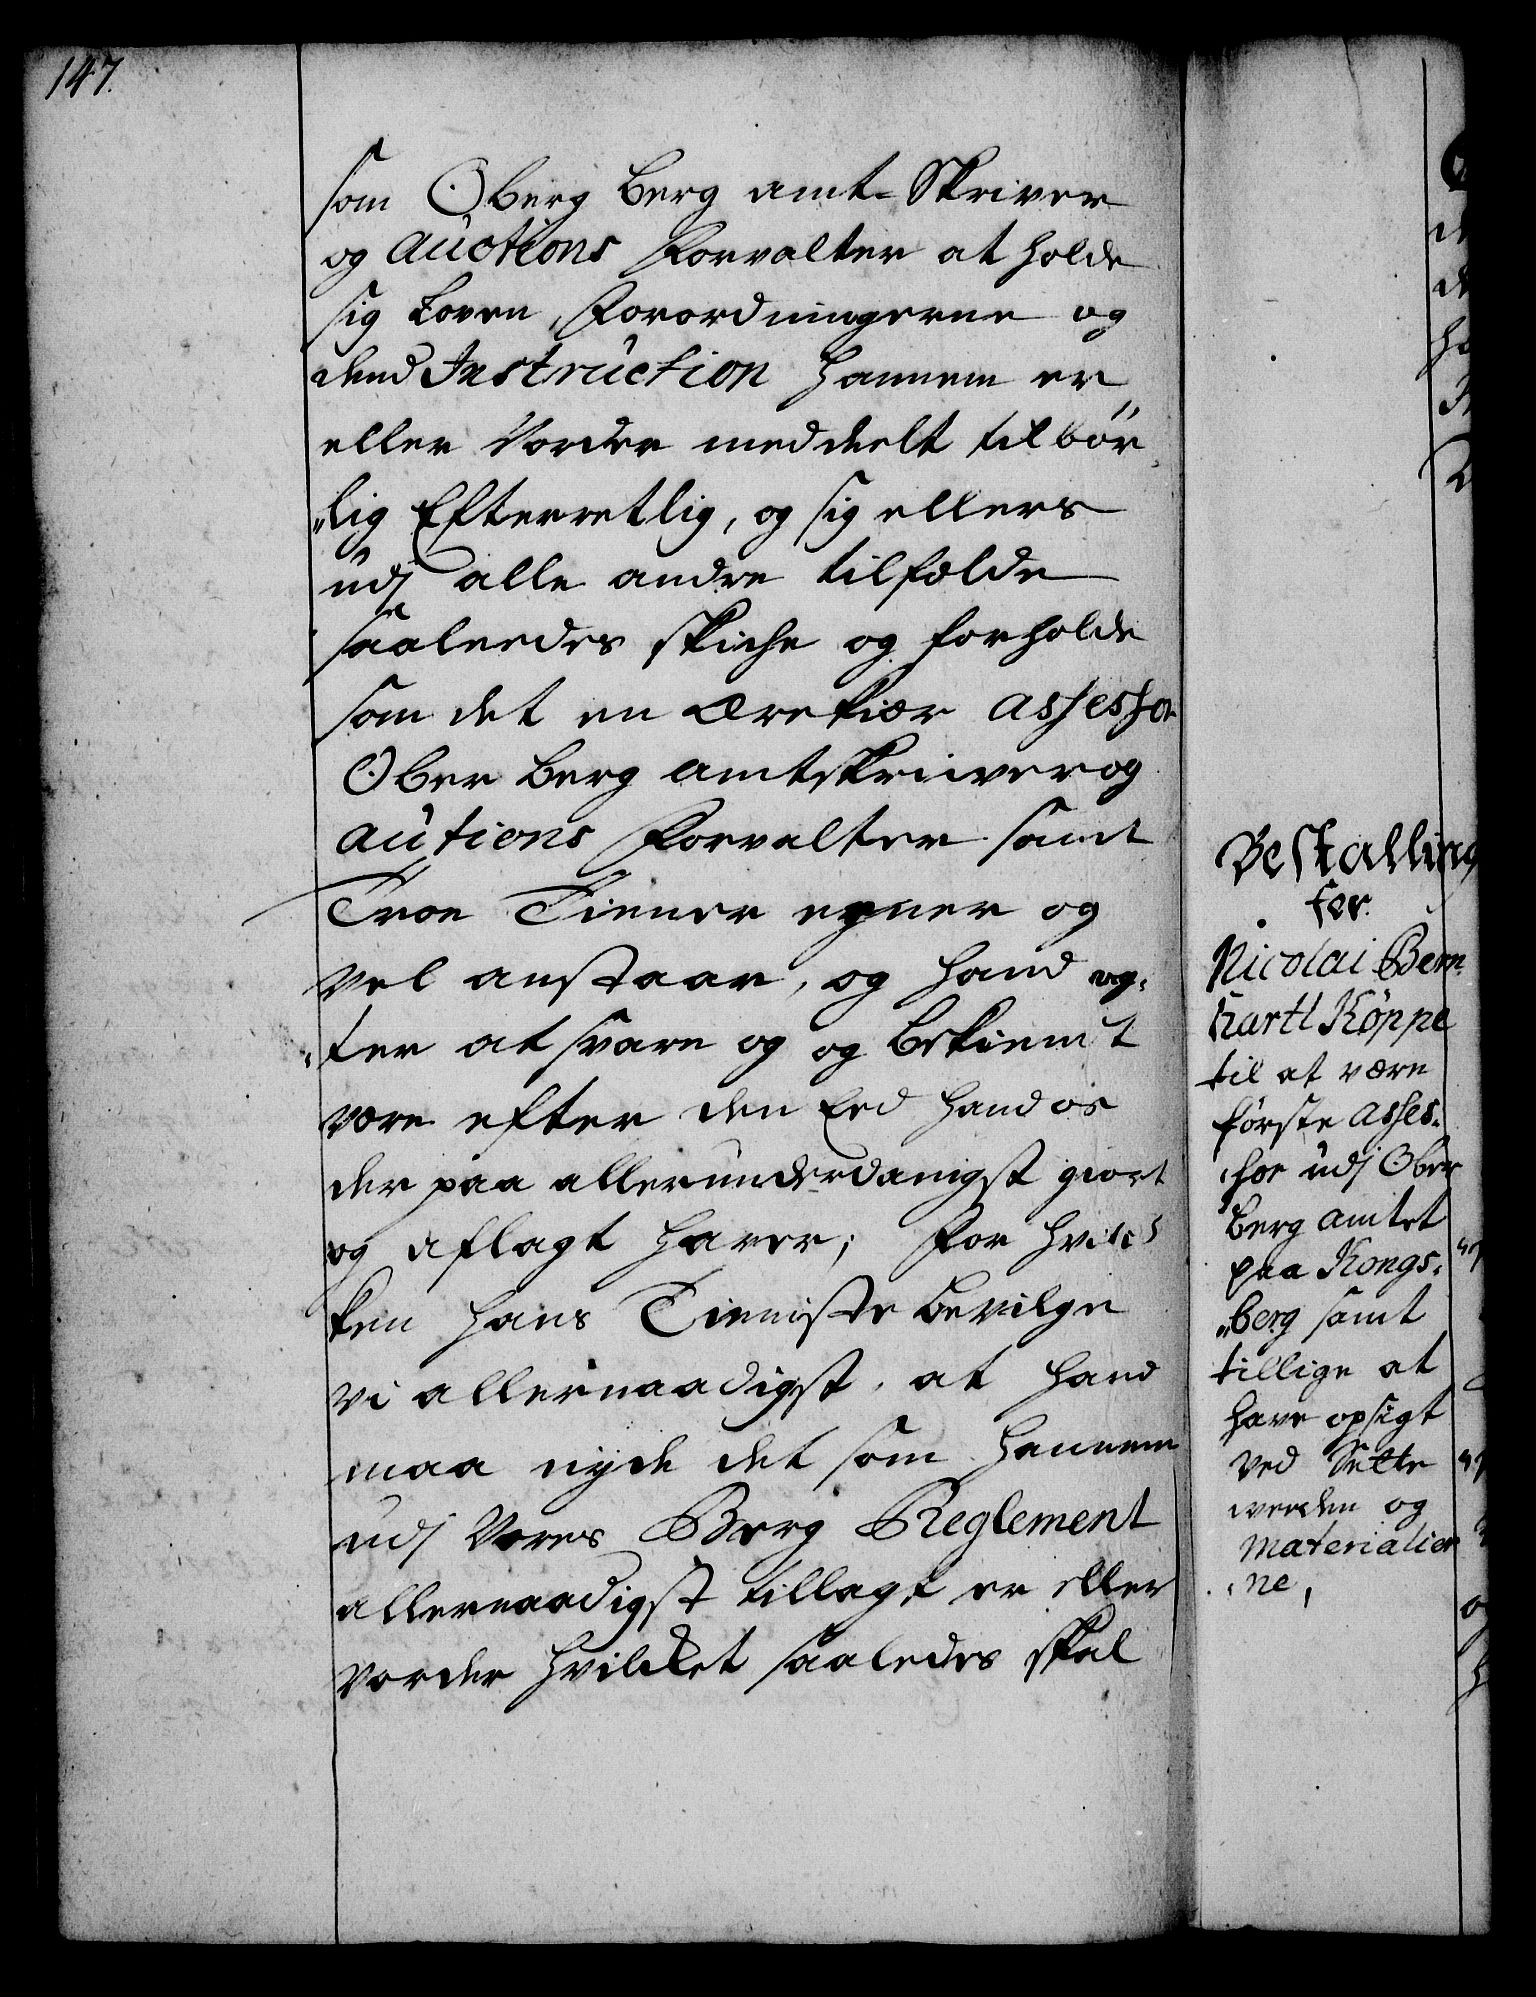 147.
som Oberg Berg amt-Skriver
og Auctions Forvalter at holde
sig Loven, Forordningerne og
dend Instruction hannem er
eller Vorder meddeelt tilbør„
„lig Efterretlig, og sig ellers
udj alle andre tilfælde
saaleedes skiche og forholde
som det en Ærekiær Assessor
Ober Berg amtskriiver og
Auctions Forvalter samt
Troe Tiener egner og
Vel anstaar, og hand ag„
„ter at svare og og bekiendt
være efter den Eed hand os
der paa allerunderdanigst giort
og aflagt haver; For hvil
ken hans Tienniste bevilge
Vi allernaadigst, at hand
maa nyde det som hannem
udj Vores Berg Reglement
allernaadigst tillagt er eller
vorder hvilcket saaledes skal
Bestalling
for
Nicolai Bern„
hartt Köppe
til at være
første Asses„
„sor udj Ober
Berg Amtet
paa Kongs„
„berg samt
tillige at
have opsigt
ved Sølv
werden og
Materialier
„ne,